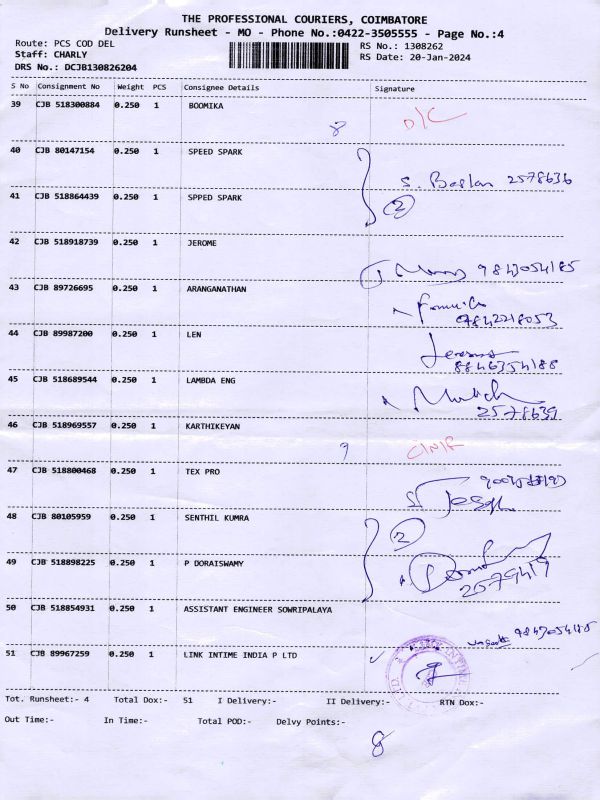 THE PROFESSIONAL COURIERS, COIMBATORE
Delivery Runsheet - MO - Phone No.:0422-3505555 - Page No.:4
Route: PCS COD DEL RS No.: 1308262
Staff: CHARLY RS Date: 20-Jan-2024
DRS No.: DCJB130826204
S No Consignment No Weight PCS Consignee Details Signature
39 CJB 518300884 0.250 1 BOOMIKA
8 D/C
40 CJB 80147154 0.250 1 SPEED SPARK
S. 2578636
41 CJB 518864439 0.250 1 SPPED SPARK
2
42 CJB 518918739 0.250 1 JEROME
9843054185
43 CJB 89726695 0.250 1 ARANGANATHAN
9842218053
44 CJB 89987200 0.250 1 LEN
8846354188
45 CJB 518689544 0.250 1 LAMBDA ENG
2578639
46 CJB 518969557 0.250 1 KARTHIKEYAN
9
47 CJB 518800468 0.250 1 TEX PRO
48 CJB 80105959 0.250 1 SENTHIL KUMRA
2
49 CJB 518898225 0.250 1 P DORAISWAMY
2579419
50 CJB 518854931 0.250 1 ASSISTANT ENGINEER SOWRIPALAYA
51 CJB 89967259 0.250 1 LINK INTIME INDIA P LTD
Tot. Runsheet:- 4 Total Dox:- 51 I Delivery:- II Delivery:- RTN Dox:-
Out Time:- In Time:- Total POD:- Delvy Points:-
8